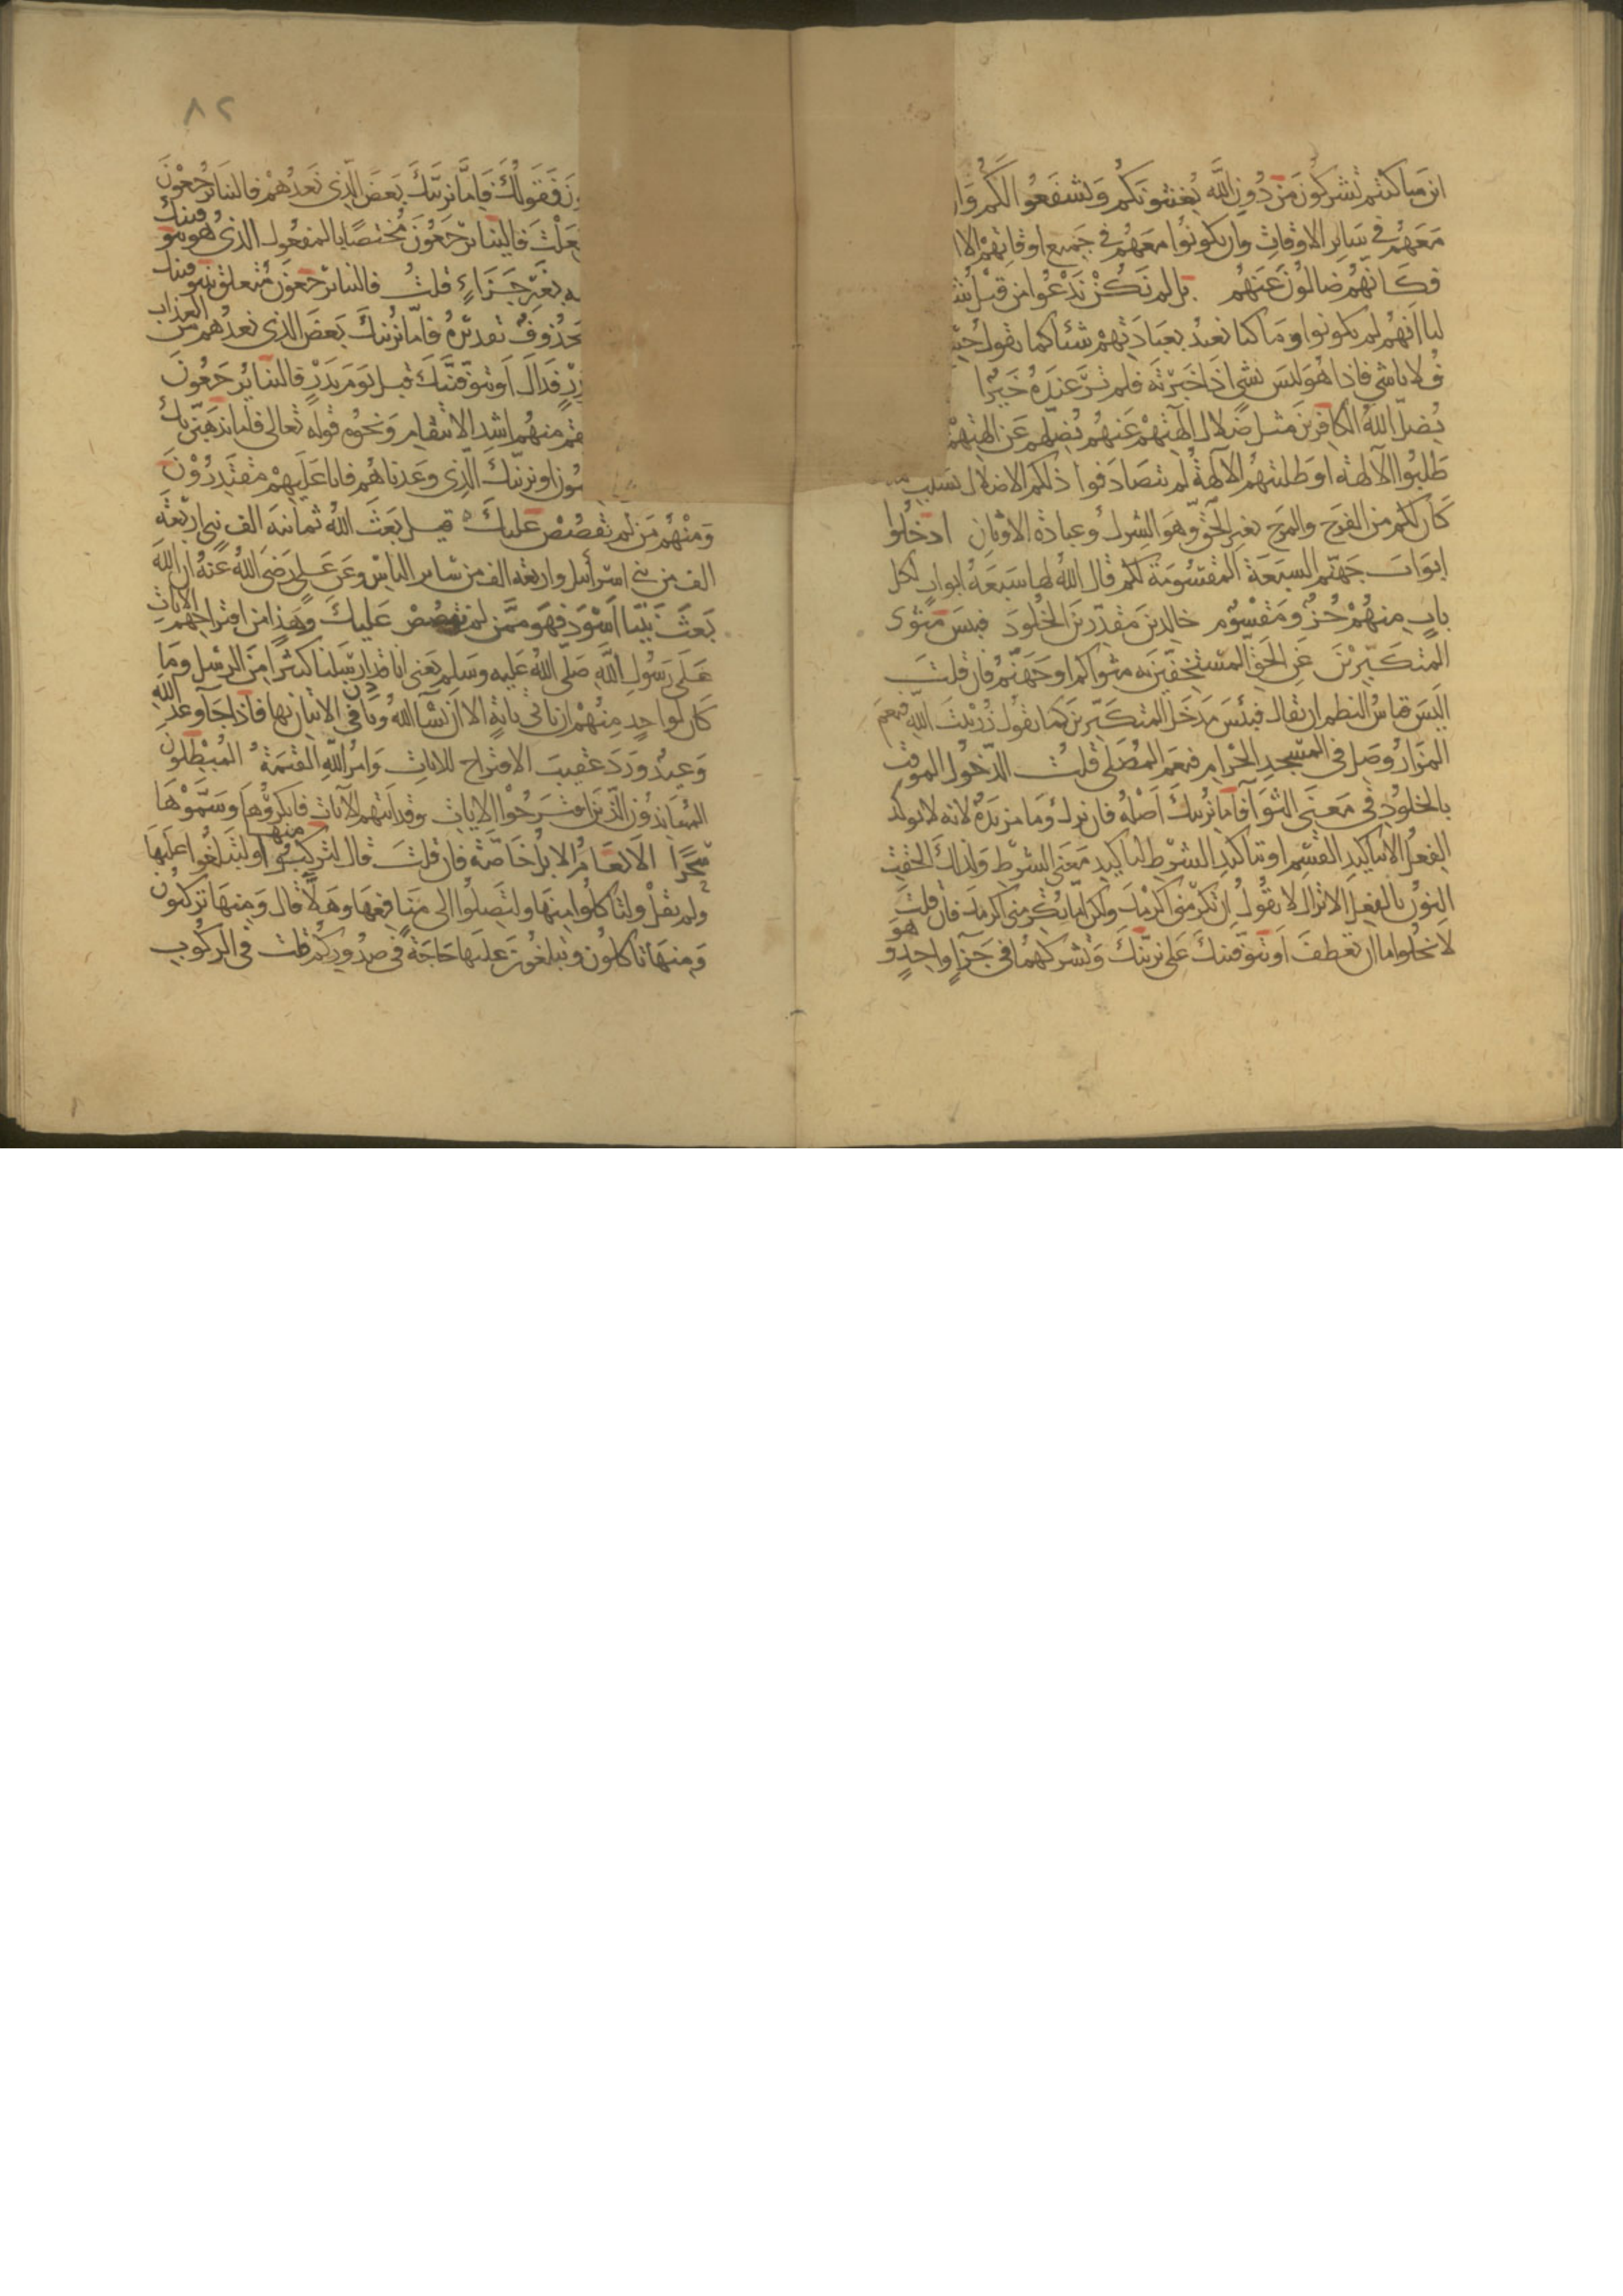 اين ما كنتم تشركون من دون الله يغيثونكم ويشفعوا لكم وان
معهم في ساير الاوقات وان يكونوا معهم في جميع اوقاتهم الا ا
فكانهم ضالون عنهم بل لم نكن ندعوا من قبل ش
لنا انهم لم يكونوا وما كنا نعبد بعبادتهم شيئا كما تقول
فلانا شي فاذا هو ليس بشي اذا خبرته فلم تر عنده خيرا
يضل الله الكافرين مثل ضلال آلهتهم عنهم يضلهم عن الهتهم
طلبوا الآلهة او طلبتهم الآلهة لم يتصادفوا ذلكم الاضلال بسبب ما
كان لكم من الفرح والمرح بغير الحق وهو الشرك وعبادة الاوثان ادخلوا
ابواب جهنم السبعة المقسومة لكم قال الله لها سبعة ابواب لكل
باب منهم جزء ومقسوم خالدين مقدرين الخلود فبئس مثوى
المتكبرين عن الحق المستخفين به مثواكم او جهنم فان قلت
اليس قياس النظم ان يقال فبئس مدخل المتكبرين كما تقول زر بيت الله فنعم
المزار وصل في المسجد الحرام فنعم المصلى قلت الدخول الموقت
بالخلود في معنى الثوا فاما نرينك اصله فان نرك وما مزيدة لانه لا يوكد
الفعل الا بتاكيد القسم او بتاكيد الشرط لتاكيد معنى الشرط ولذلك الحقت
النون بالفعل الا تراك لا تقول ان تكرمني اكرمك ولكن اما تكرمني اكرمك فان قلت
لا يخلوا اما ان تعطف او نتوفينك على نرينك وتشركهما في جزآ واحد وهو
ون فقولك فاما نرينك بعض الذي نعدهم فالينا ترجعون
جعلت فالينا يرجعون مختصا بالمفعول الذي هو نتوفينك
به بغير جزاء قلت فالينا يرجعون متعلق بنتوفينك
محذوف تقديره فاما نرينك بعض الذي نعدهم من العذاب
بدر فذاك او نتوفينك قبل يوم بدر فالينا يرجعون
فننتقم منهم اشد الانتقام ونحوه قوله تعالى فاما نذهبن بك
مون او نرينك الذي وعدناهم فانا عليهم مقتدرون
ومنهم من لم نقصص عليك قيل بعث الله ثمانية الف نبي اربعة
الف من بني اسرائيل واربعة الف من ساير الناس وعن علي رضي الله عنه ان الله
بعث نبيا اسود فهو ممن لم نقصص عليك وهذا من اقتراحهم الايات
على رسول الله صلى الله عليه وسلم يعني انا قد ارسلنا كثيرا من الرسل وما
كان لواحد منهم ان ياتي باية الا ان يشآ الله وياذن في الاتيان بها فاذا جآ وعد الله
وعيد ورد عقيب الاقتراح للايات وامر الله القيمة المبطلون
المعاندون الذين اقترحوا الايات وقد اتتهم الآيات فانكروها وسموها
سحرا الانعام الابل خاصة فان قلت قال لتركبوا منها ولتبلغوا عليها
ولم يقل ولتاكلوا منها ولتصلوا الى منافعها وهلا قال ومنها تركبون
ومنها تاكلون وتبلغون عليها حاجة في صدوركم قلت في الركوب
٨٢